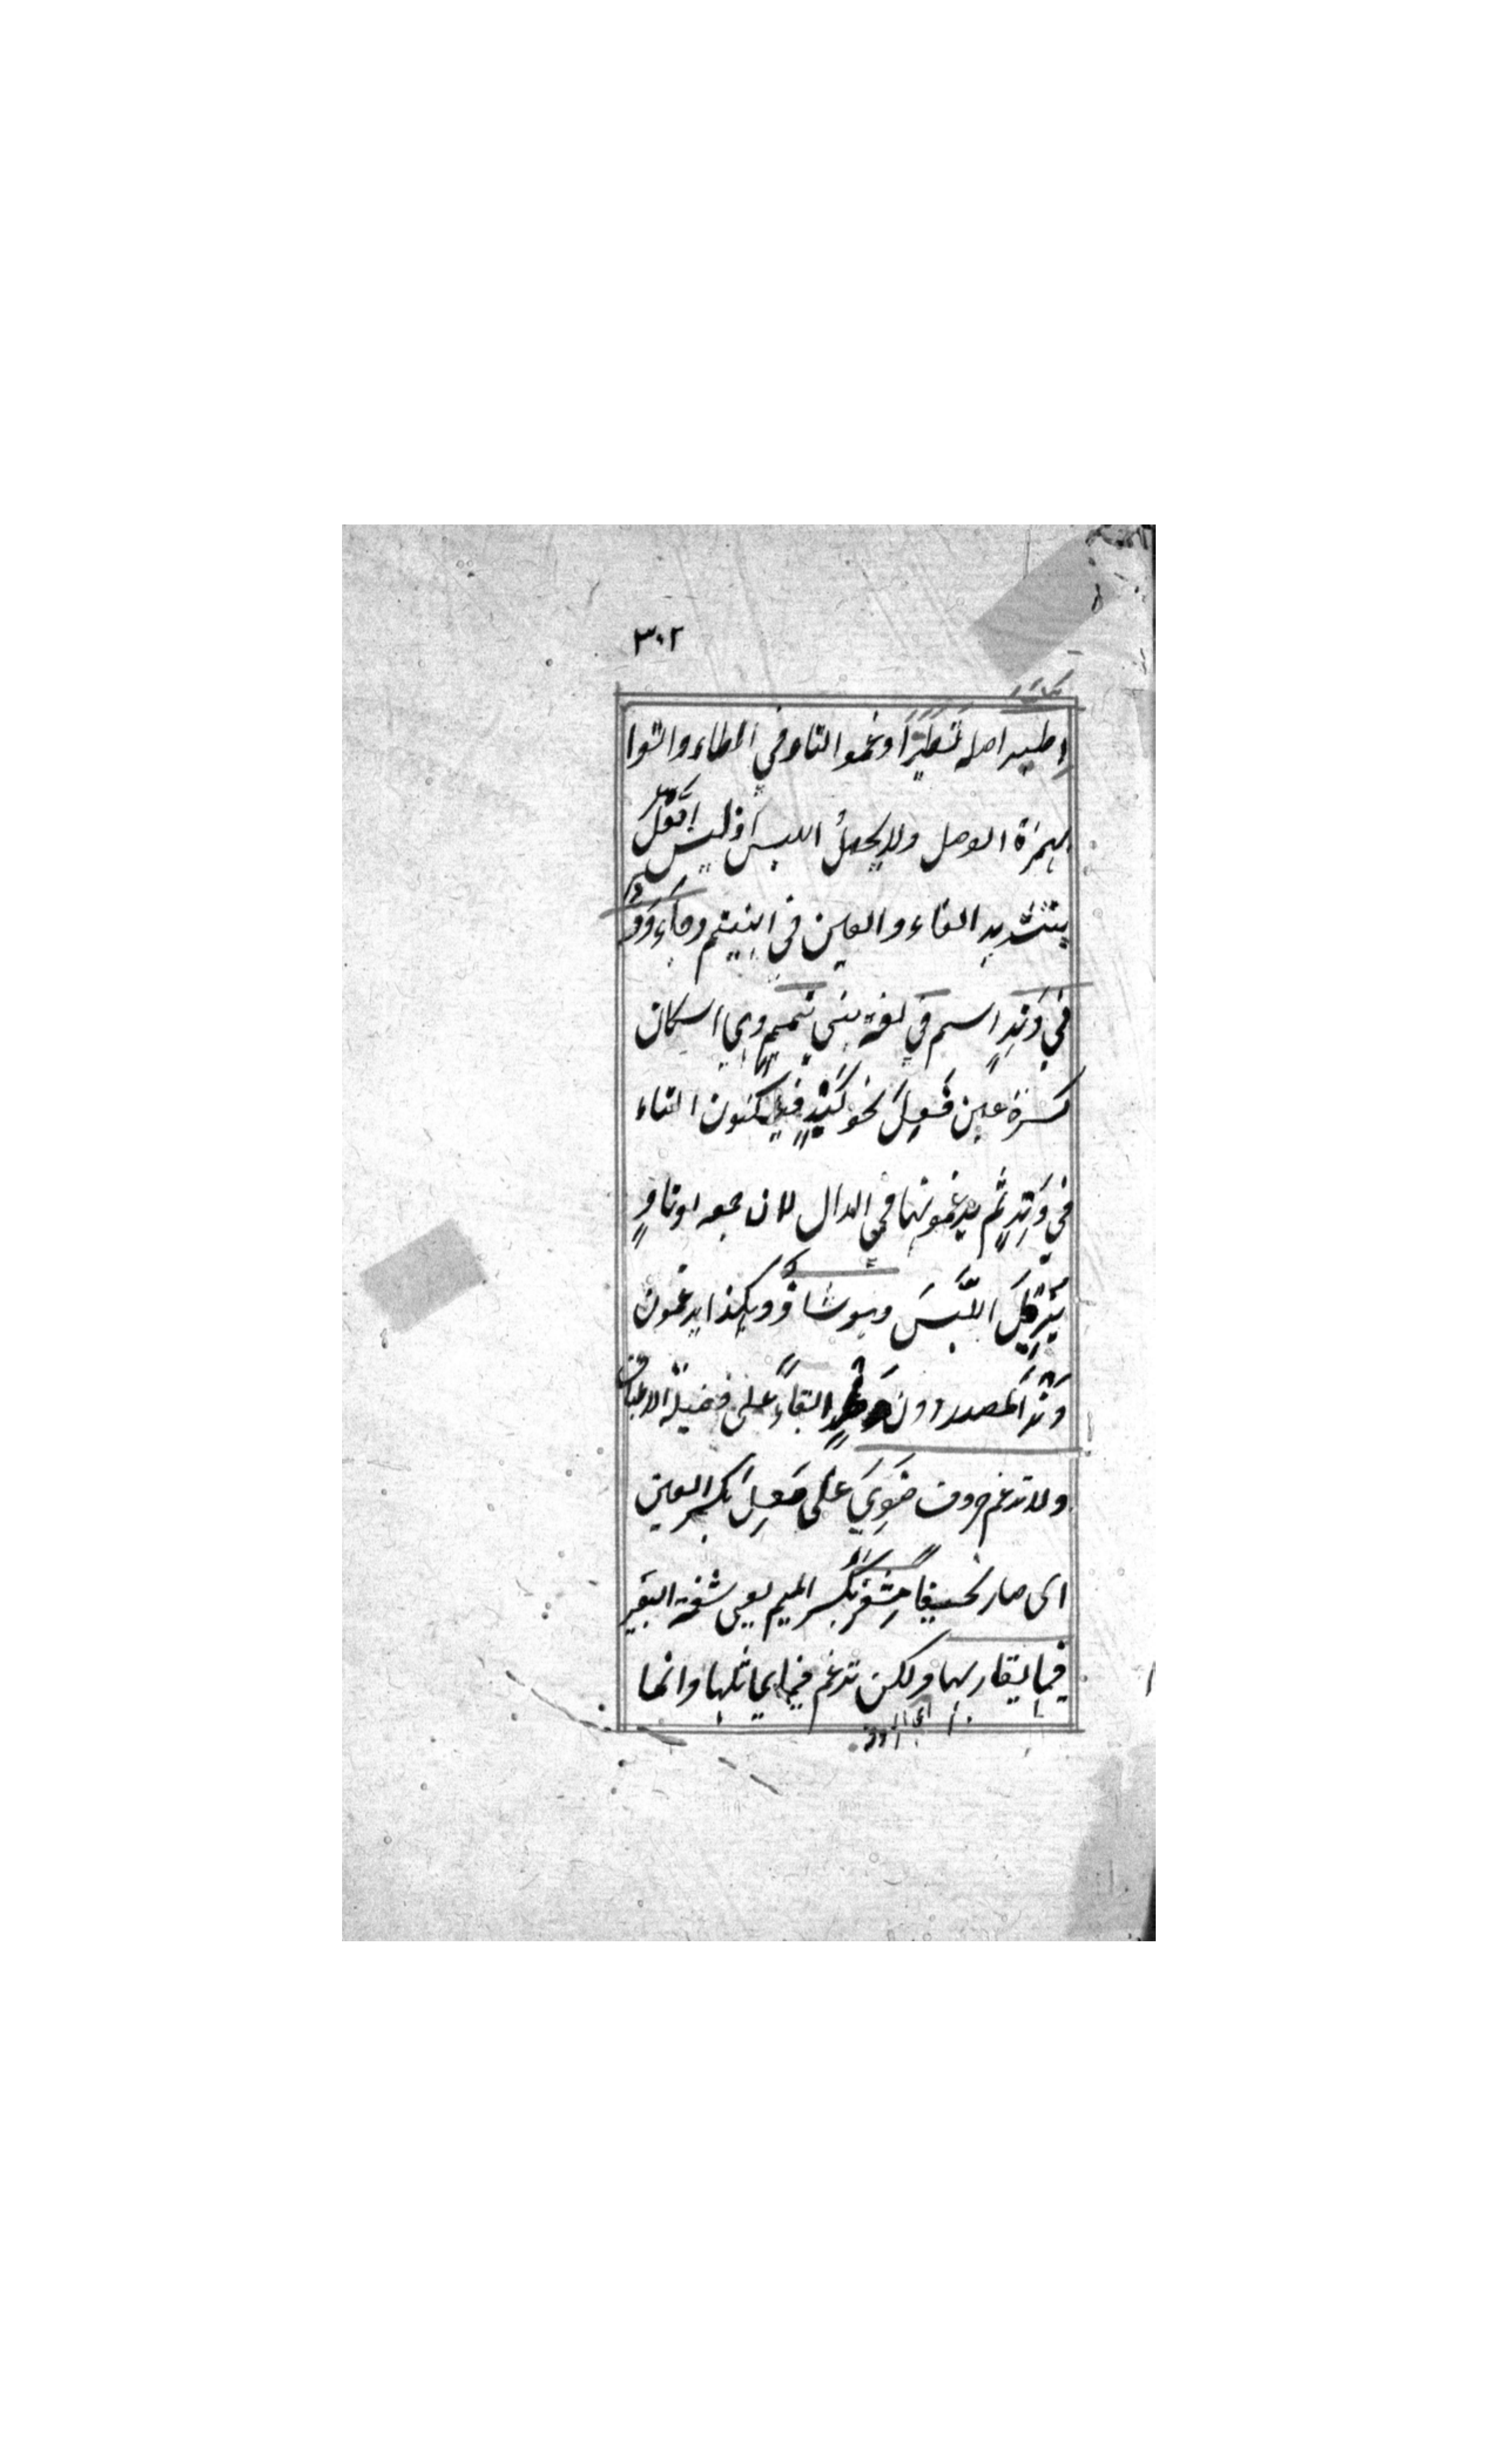 ٣٠٢
اطير اصله تَطَيَّرَ ادغموا التاء في الطاء واتوا
بهمزة الوصل ولا يحصلُ اللبس اذ ليس اِفَّعَّلَ
بتشديدِ الفاء والعين في ابنيتهم وجاءَ وَدٌّ
في وَتِدٍ اسم في لغة بني تميمٍ وهي اسكان
كسرة عين فَعِلَ نحو كَبْدٍ فيسكنون التاء
في وَتِدٍ ثم يدغمونها في الدال لان جمعه اوتادٍ
يُزيلَ اللَّبسَ وهو شاذ وهكذا يدغمون
وَتْدَ المصدر دون وَطْدٍ ابقاءً على فضيلة الاطباق
ولا تدغم حروف ضَوِيَ على فَعِلَ بكسر العين
اى صار نحيفا مِشْفَرٌ بكسر الميم يعنى شفة البعير
فيما يقاربها ولكن تدغم فيما يماثلها وانما